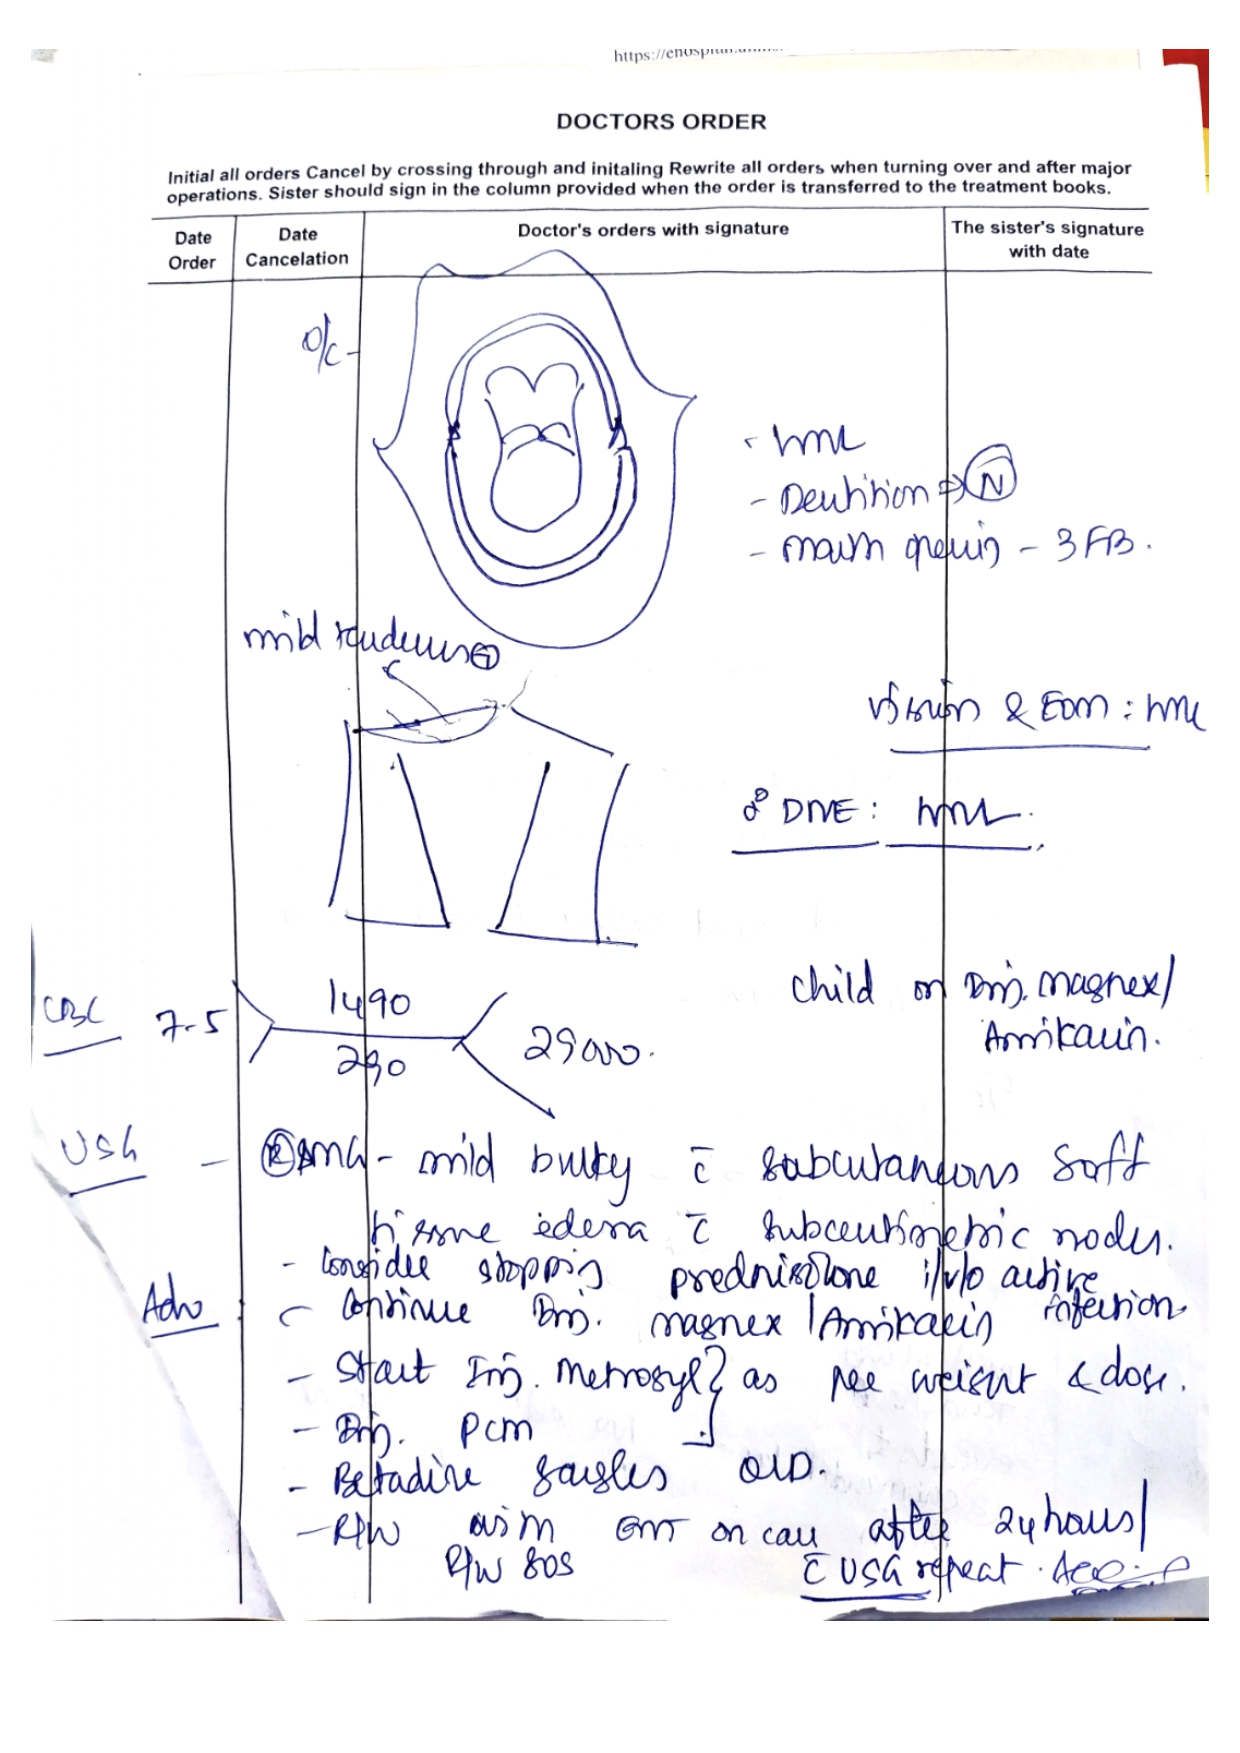 https://ehospital.
DOCTORS ORDER
Initial all orders Cancel by crossing through and initaling Rewrite all orders when turning over and after major
operations. Sister should sign in the column provided when the order is transferred to the treatment books.
Date Order
Date Cancelation
Doctor's orders with signature
The sister's signature with date
O/C -
- WNL
- Dentition ⇒ N
- Mouth opening - 3 FB.
mild tenderness ⊕
Vision & EOM : WNL
DNE : WNL.
Child on Inj. Magnex/
Amikacin.
CBC 7.5 1490 290 29000.
USG - (R) SMG - mild bulky c̄ subcutaneous soft
tissue edema c̄ subcentimetric nodes.
Adv - Consider stopping prednisolone i/v/o active infection
- Continue Inj. Magnex / Amikacin
- Start Inj. Metrogyl } as per weight & dose.
- Inj. PCM
- Betadine gargles QID.
- R/W with ENT on call after 24 hours/
R/W SOS c̄ USG repeat.